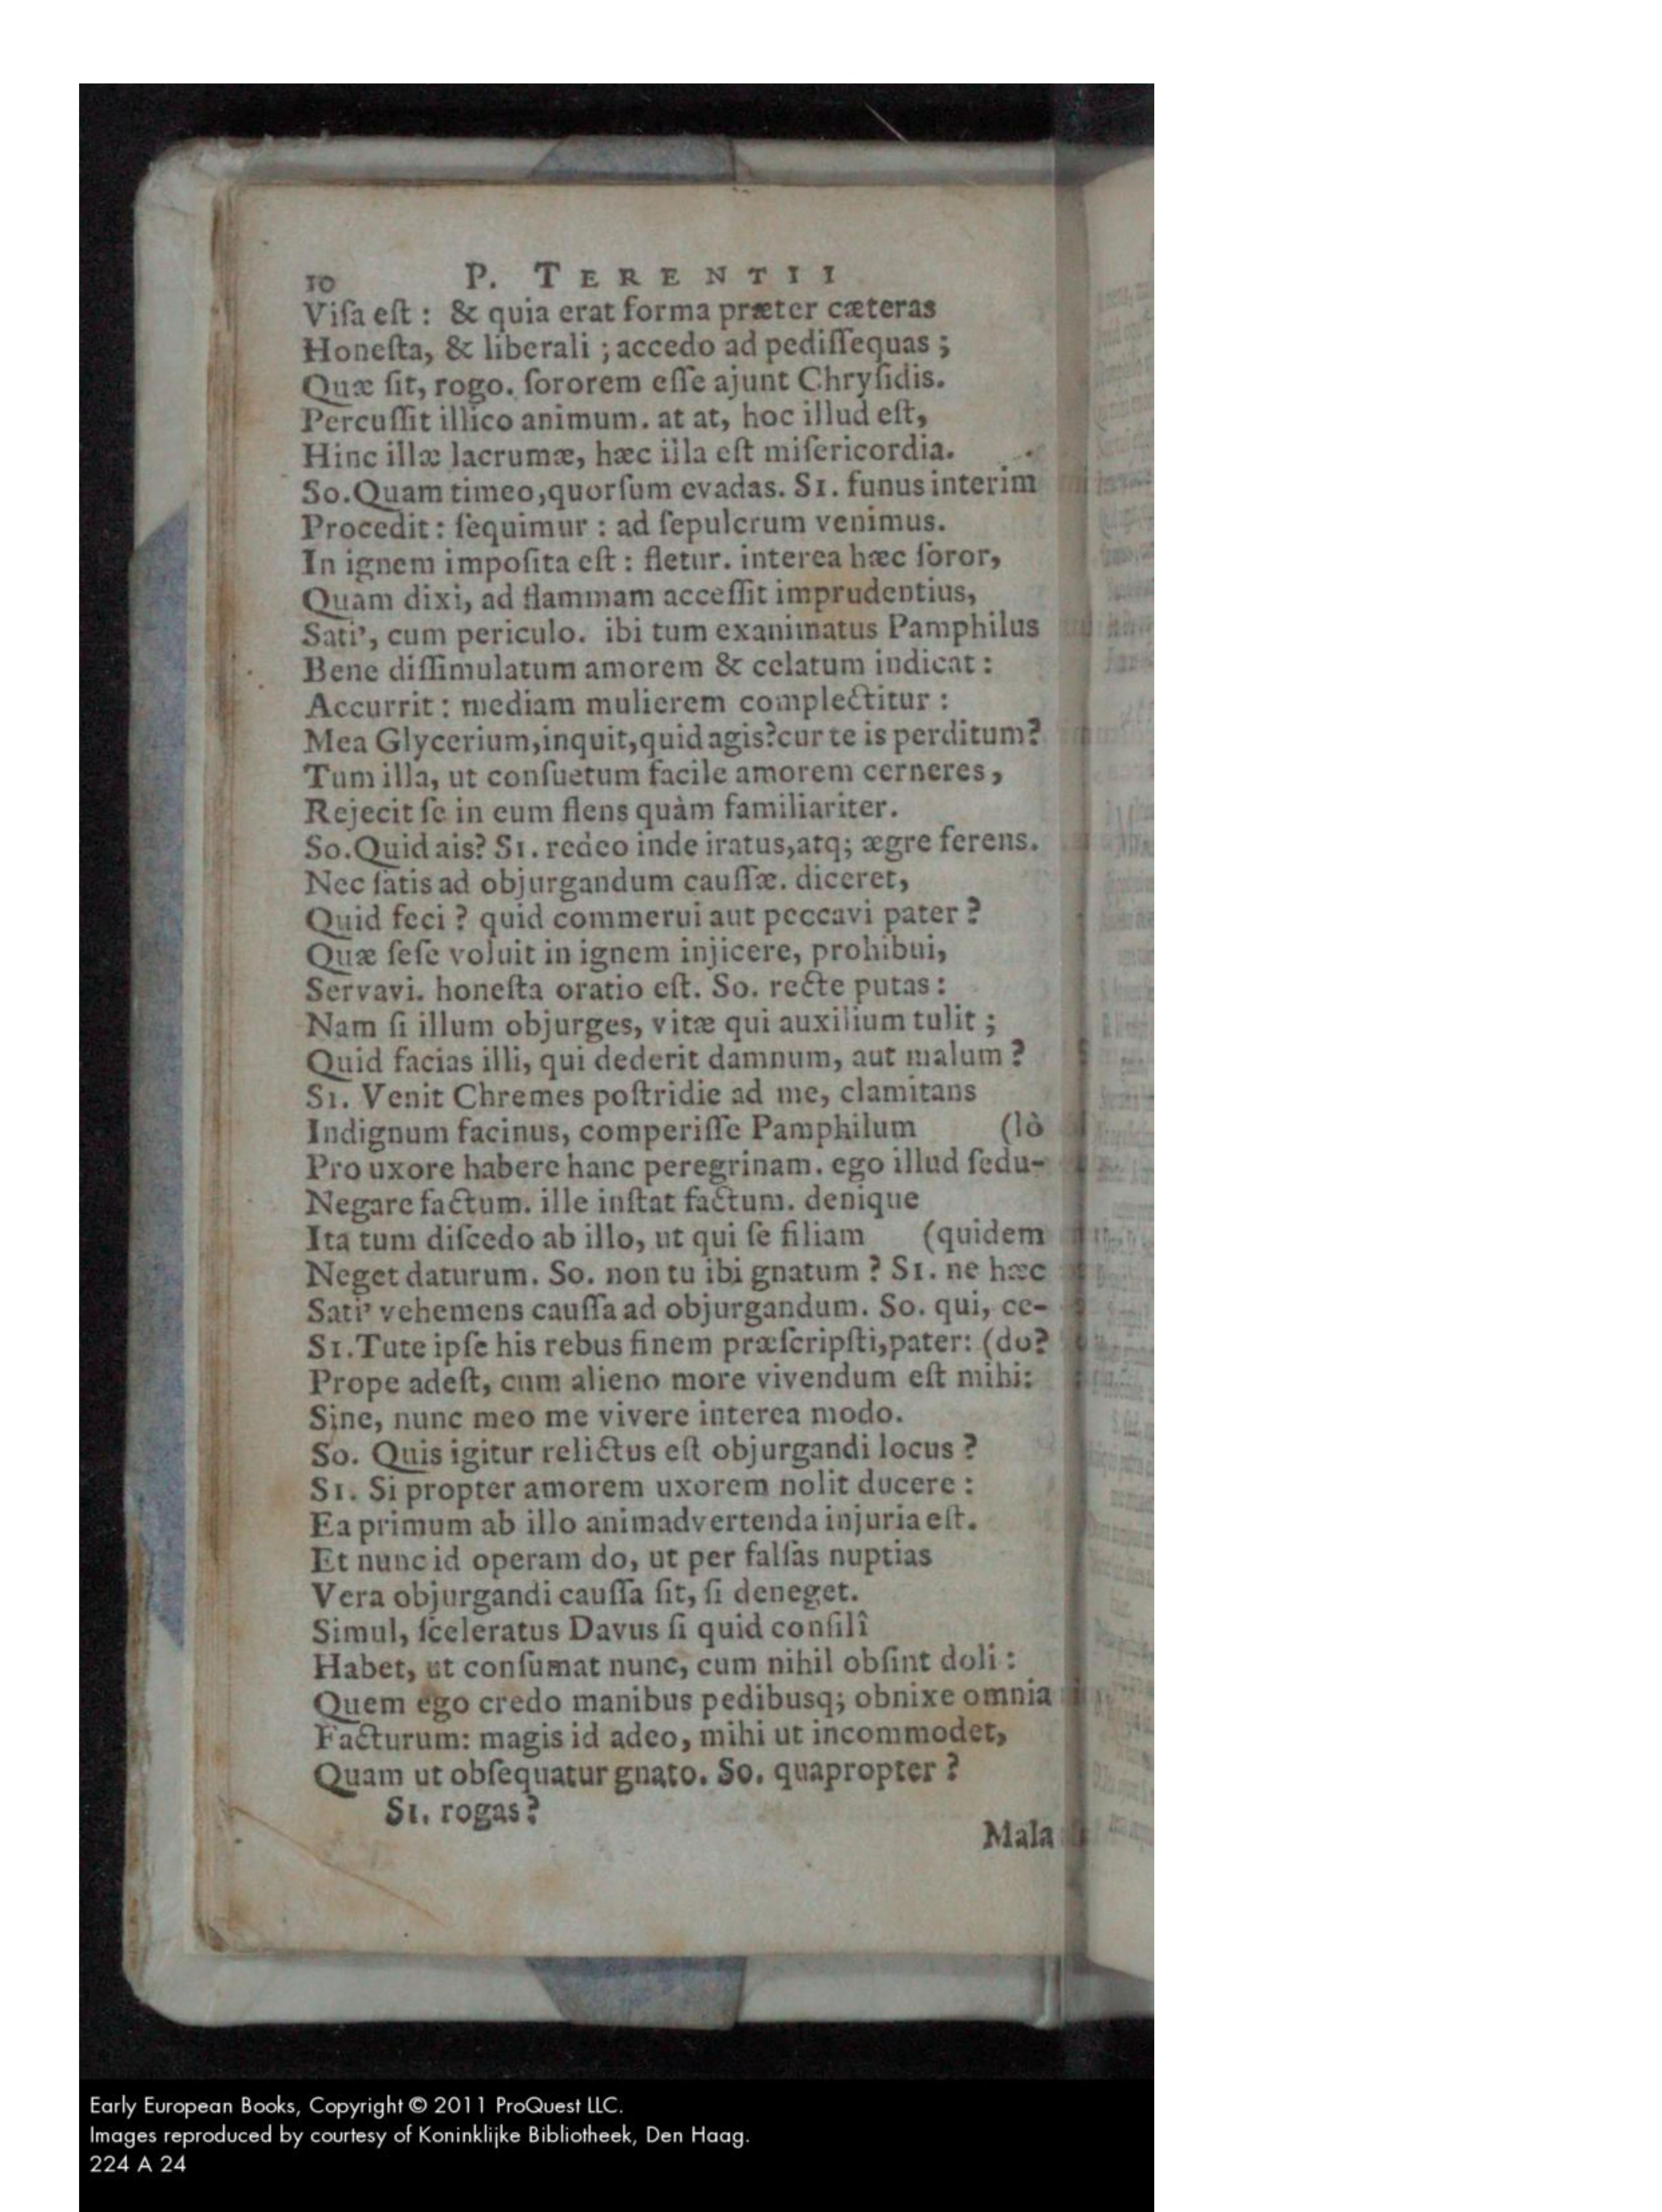 10 P. TERENTII
Viſa eſt : & quia erat forma præter cæteras
Honeſta, & liberali ; accedo ad pediſſequas ;
Quæ ſit, rogo. ſororem eſſe ajunt Chryſidis.
Percuſſit illico animum. at at, hoc illud eſt,
Hinc illæ lacrumæ, hæc illa eſt miſericordia.
So. Quam timeo, quorſum evadas. SI. funus interim
Procedit : ſequimur : ad ſepulcrum venimus.
In ignem impoſita eſt : fletur. interea hæc ſoror,
Quam dixi, ad flammam acceſſit imprudentius,
Sati', cum periculo. ibi tum exanimatus Pamphilus
Bene diſſimulatum amorem & celatum indicat :
Accurrit : mediam mulierem complectitur :
Mea Glycerium, inquit, quid agis? cur te is perditum?
Tum illa, ut conſuetum facile amorem cerneres,
Rejecit ſe in eum flens quàm familiariter.
So. Quid ais? SI. redeo inde iratus, atq; ægre ferens.
Nec ſatis ad objurgandum cauſſæ. diceret,
Quid feci ? quid commerui aut peccavi pater ?
Quæ ſeſe voluit in ignem injicere, prohibui,
Servavi. honeſta oratio eſt. So. recte putas :
Nam ſi illum objurges, vitæ qui auxilium tulit ;
Quid facias illi, qui dederit damnum, aut malum ?
SI. Venit Chremes poſtridie ad me, clamitans
Indignum facinus, comperiſſe Pamphilum (lò
Pro uxore habere hanc peregrinam. ego illud ſedu-
Negare factum. ille inſtat factum. denique
Ita tum diſcedo ab illo, ut qui ſe filiam (quidem
Neget daturum. So. non tu ibi gnatum ? SI. ne hæc
Sati' vehemens cauſſa ad objurgandum. So. qui, ce-
SI. Tute ipſe his rebus finem præſcripſti, pater: (do?
Prope adeſt, cum alieno more vivendum eſt mihi:
Sine, nunc meo me vivere interea modo.
So. Quis igitur relictus eſt objurgandi locus ?
SI. Si propter amorem uxorem nolit ducere :
Ea primum ab illo animadvertenda injuria eſt.
Et nunc id operam do, ut per falſas nuptias
Vera objurgandi cauſſa ſit, ſi deneget.
Simul, ſceleratus Davus ſi quid conſilî
Habet, ut conſumat nunc, cum nihil obſint doli :
Quem ego credo manibus pedibusq; obnixe omnia
Facturum: magis id adeo, mihi ut incommodet,
Quam ut obſequatur gnato. So. quapropter ?
SI. rogas?
Mala
Early European Books, Copyright © 2011 ProQuest LLC.
Images reproduced by courtesy of Koninklijke Bibliotheek, Den Haag.
224 A 24